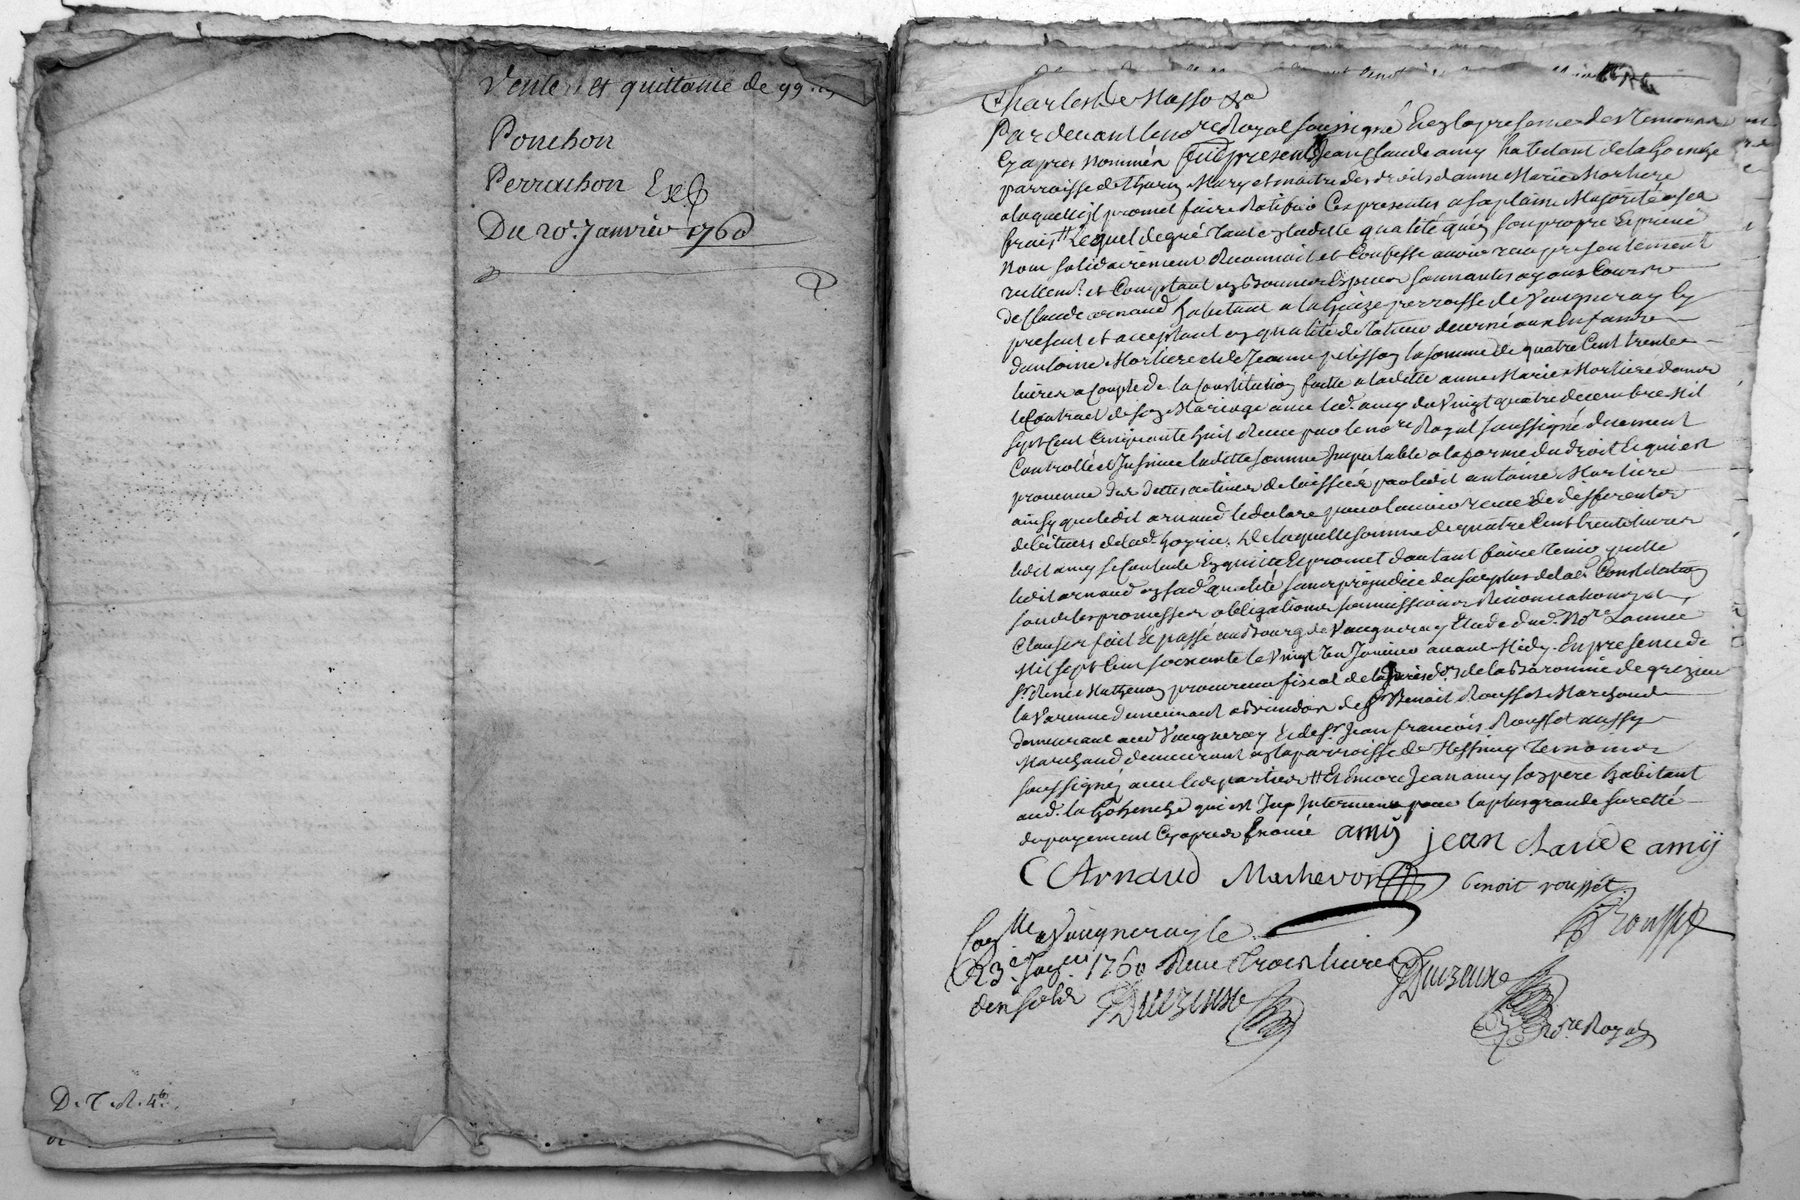 Vente et quittance de 99
Ponchon
Perrachon Exp
Du 20e Janvier 1760
D. C. R. 4
Charles De Masso &a
Pardevant le nore Royal soussigné Et en la presence des temoins
Cy apres nommés fut present Jean Claude amy habitant de la
parroisse de Thurin Mary et maitre des droits d'anne Marie Morliere
a laquelle jl promet faire Ratifier Ces presentes a sa plaine Majorité a ses
frais # Lequel de gré tant en laditte qualité qu'en son propre Et privé
Nom solidairement Reconnoit et Confesse avoir reçu presentement
reellemt et Comptant en Bonnes Especes sonnantes ayant Cours
de Claude arnaud habitant a la parroisse de Vaugneray Cy
present et acceptant en qualité de tuteur decerné aux Enfans
d'antoine Morliere et de Jeanne pelisson la somme de quatre Cent trente
livres a Compte de la Constitution faitte a laditte anne Marie Morliere dans
le Contract de son Mariage avec led. amy du Vingt quatre decembre Mil
sept Cent Cinquante huit Receu par le nore Royal soussigné duement
Controllé et Insinué laditte somme Imputable a la forme du droit Et qui est
provenue des dettes actives delaissées par ledit antoine Morliere
ainsy que ledit arnaud le declare pour l'avoir receue de differents
debiteurs de lad. hoyrie. De laquelle somme de quatre Cent trente livres
ledit amy se Contente En quitte Et promet d'autant faire tenir quitte
ledit arnaud en sad. qualité sans prejudice du surplus de lad. Constitution
sous les promesses obligations soumissions Renonciations et
Clauses fait Et passé au Bourg de Vaugneray Etude dud. Nore L'année
Mil sept Cent soixante le Vingt un Janvier avant Midy. En presence de
sr René Mathevon procureur fiscal de la Jurisdon de la Baronnie de grezieu
la Varenne demeurant a Brindas de sr Benoit Rousset Marchand
demeurant aud Vaugneray Et de sr Jean francois Rousset aussy
Marchand demeurant en la parroisse de Messimy temoins
soussignés avec les parties # Et Encore Jean amy son pere habitant
aud. qui est Icy Intervenu pour la plus grande suretté
du payement Cy apres Enoncé amy jean claude amy
C Arnaud Mathevon benoit roussét
Rousset
Conlle a Vaugneray le
23e Janer 1760 Receu Trois livres
Duizeuxe
Duizeuxe
nore Royal